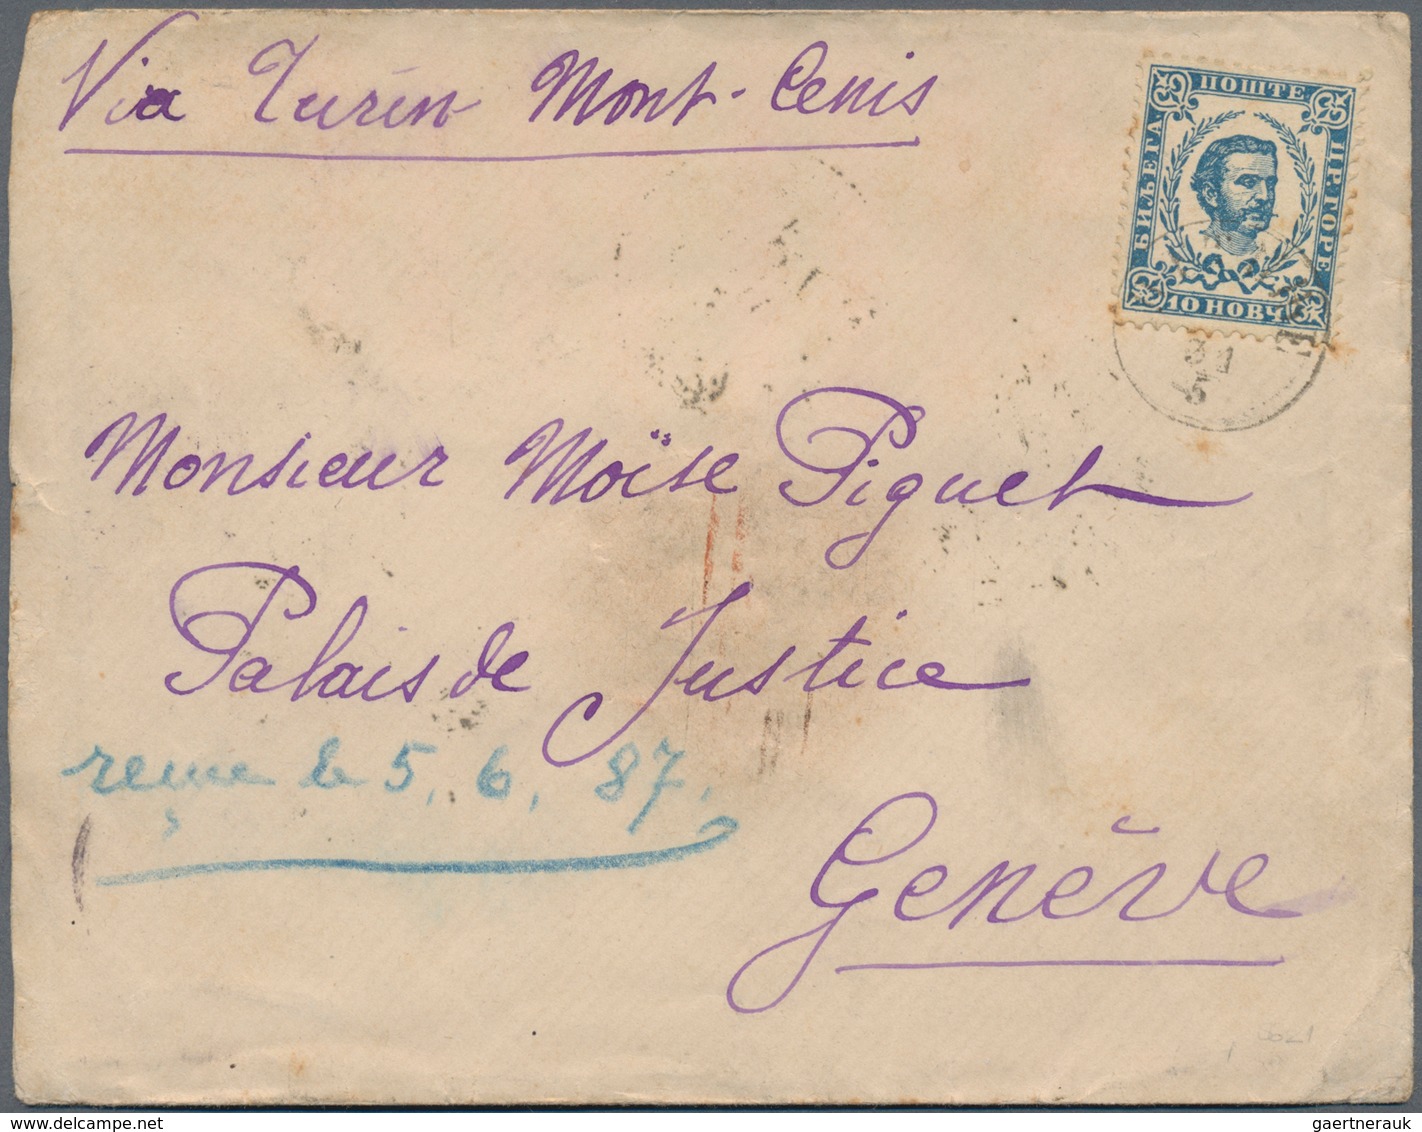 Via Turin Mont-Cenis
ПОШТЕ
БИЉЕГА
ЦР. ГОРЕ
10 НОВЧ
Monsieur Moïse Piguet
Palais de Justice
reçue le 5. 6. 87.
Genève
gaertnerauk